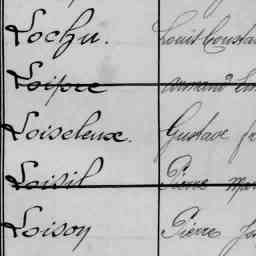 Lochu. Louis Consta
Loipre Armand
Loiseleux. Gustave
Loisil Pierre Mar
Loison Pierre